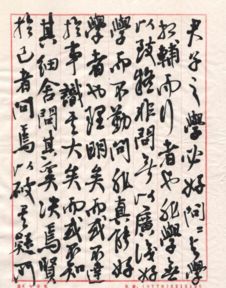 君子之學必好問々與學
相輔而行者也非學無
以致疑非問無以廣識好
學而不勤問非真能好
學者也理明矣而或不達
於事識其大矣而或不知
其細舍問其奚決焉賢
於己者問焉以破其疑所